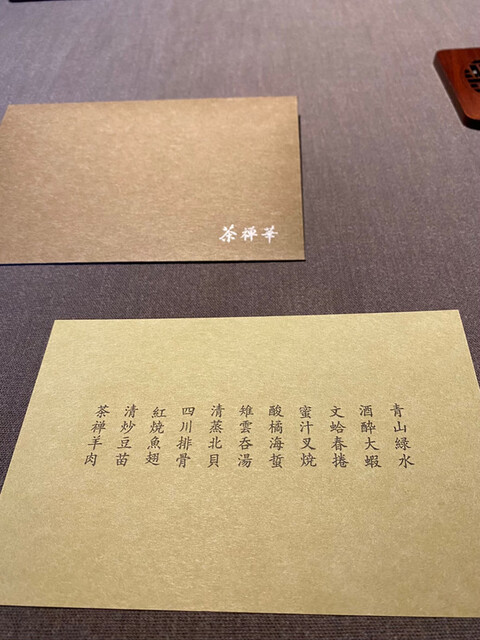 茶禅華
青山緑水
酒醉大蝦
文蛤春捲
蜜汁叉焼
酸橘海蜇
雉雲呑湯
清蒸北貝
四川排骨
紅燒魚翅
清炒豆苗
茶禅羊肉